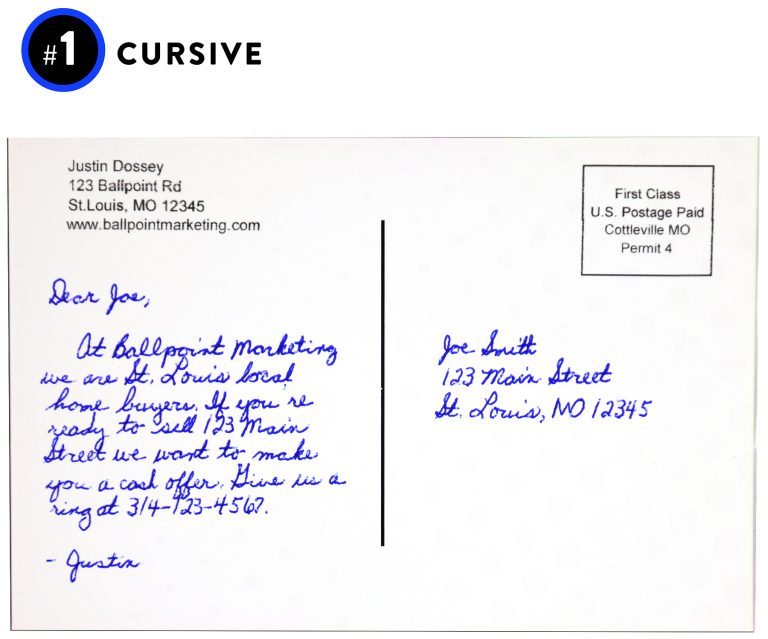 #1 CURSIVE
Justin Dossey
123 Ballpoint Rd
St.Louis, MO 12345
www.ballpointmarketing.com
First Class
U.S. Postage Paid
Cottleville MO
Permit 4
Dear Joe,
At Ballpoint Marketing
we are St. Louis local
home buyers. If you're
ready to sell 123 Main
Street we want to make
you a cash offer. Give us a
ring at 314-123-4567.
- Justin
Joe Smith
123 Main Street
St. Louis, MO 12345